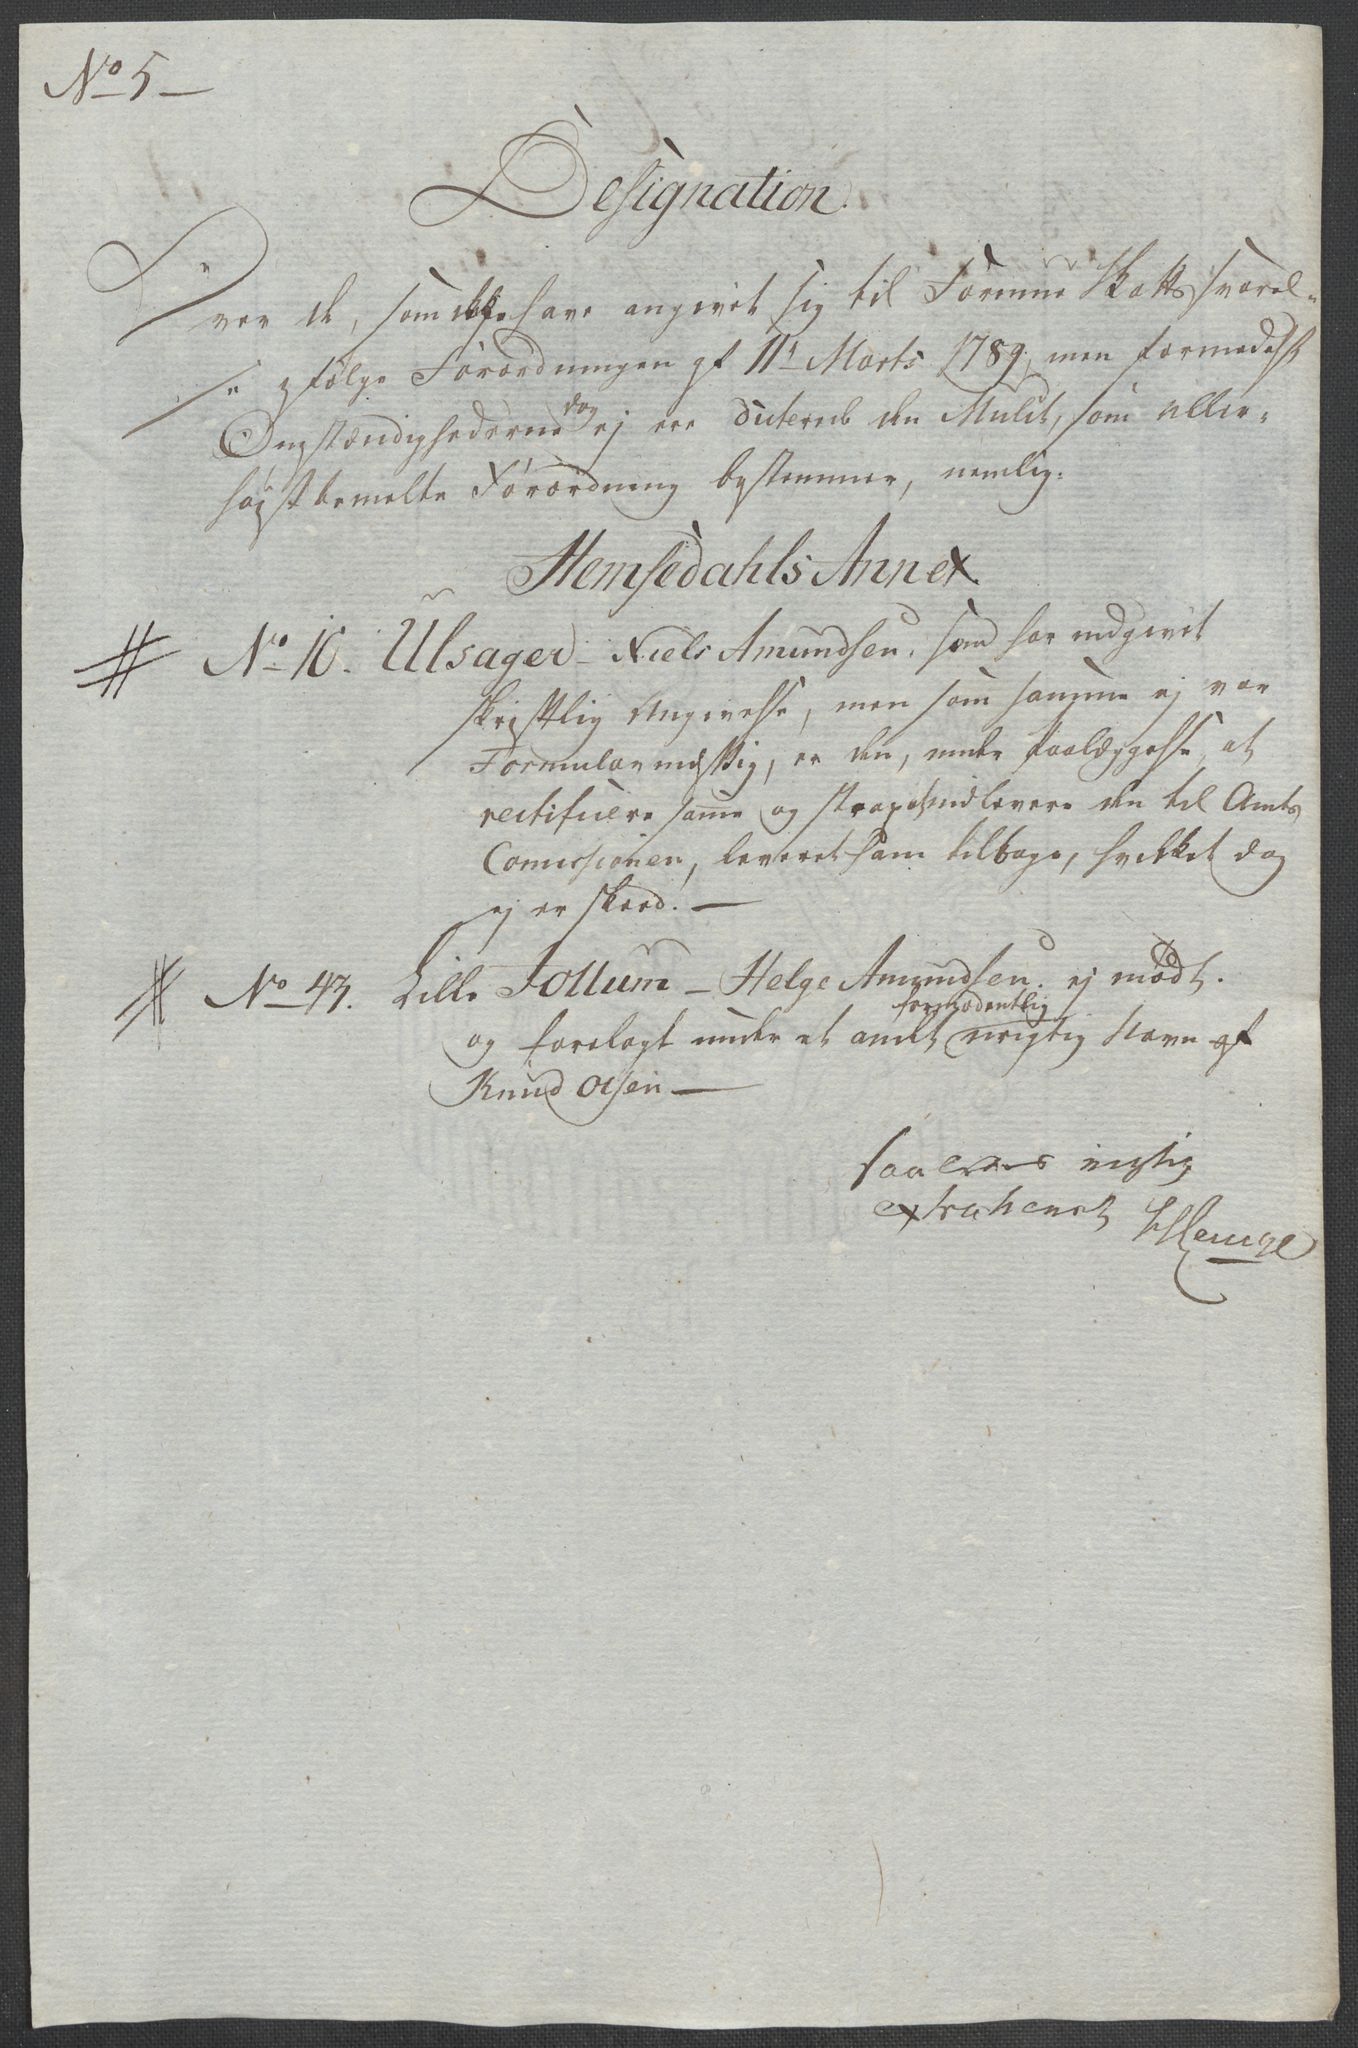 No 5
Designation
Over de, som ikke have angivet sig til Formue Skatts svarel-
se ifølge Forordningen af 11t Marts 1789, men formedelst
Omstændighederne dog ej ere dicteret den Mulct, som aller-
høist bemelte Forordning bestemmer, nemlig:
Hemsedahls Annex
No 16. Ulsager - Niels Amundsen, som har indgivet
skriftlig Angivelse, men som samme ej var
Formularmessig, er den, under Paalæggelse at
rectificere samme og strax indlevere den til Amts
Comissionen, leveret ham tilbage, hvilket dog
ej er skeed.
No 43. Lille Tottum - Helge Amundsen. ej mødt.
og forelagt under et andet formodentlig urigtig Navn af
Knud Olsen
saaledes rigtig
extraheret